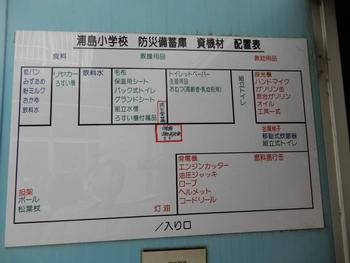 浦島小学校 防災備蓄庫 資機材 配置表
食料
救援用品
救助用品
乾パン
みずあめ
粉ミルク
おかゆ
飲料水
リヤカー
ろすい機
飲料水
毛布
保温用シート
パック式トイレ
グランドシート
組立水槽
ろすい機付属品
トイレットペーパー
生理用品
おむつ(高齢者・乳幼児用)
組立トイレ
投光機
ハンドマイク
ガソリン缶
混合ガソリン
オイル
工具一式
移動式炊飯器
組立式トイレ
担架
ポール
松葉杖
灯油
発電機
エンジンカッター
油圧ジャッキ
ロープ
ヘルメット
コードリール
燃料携行缶
入り口